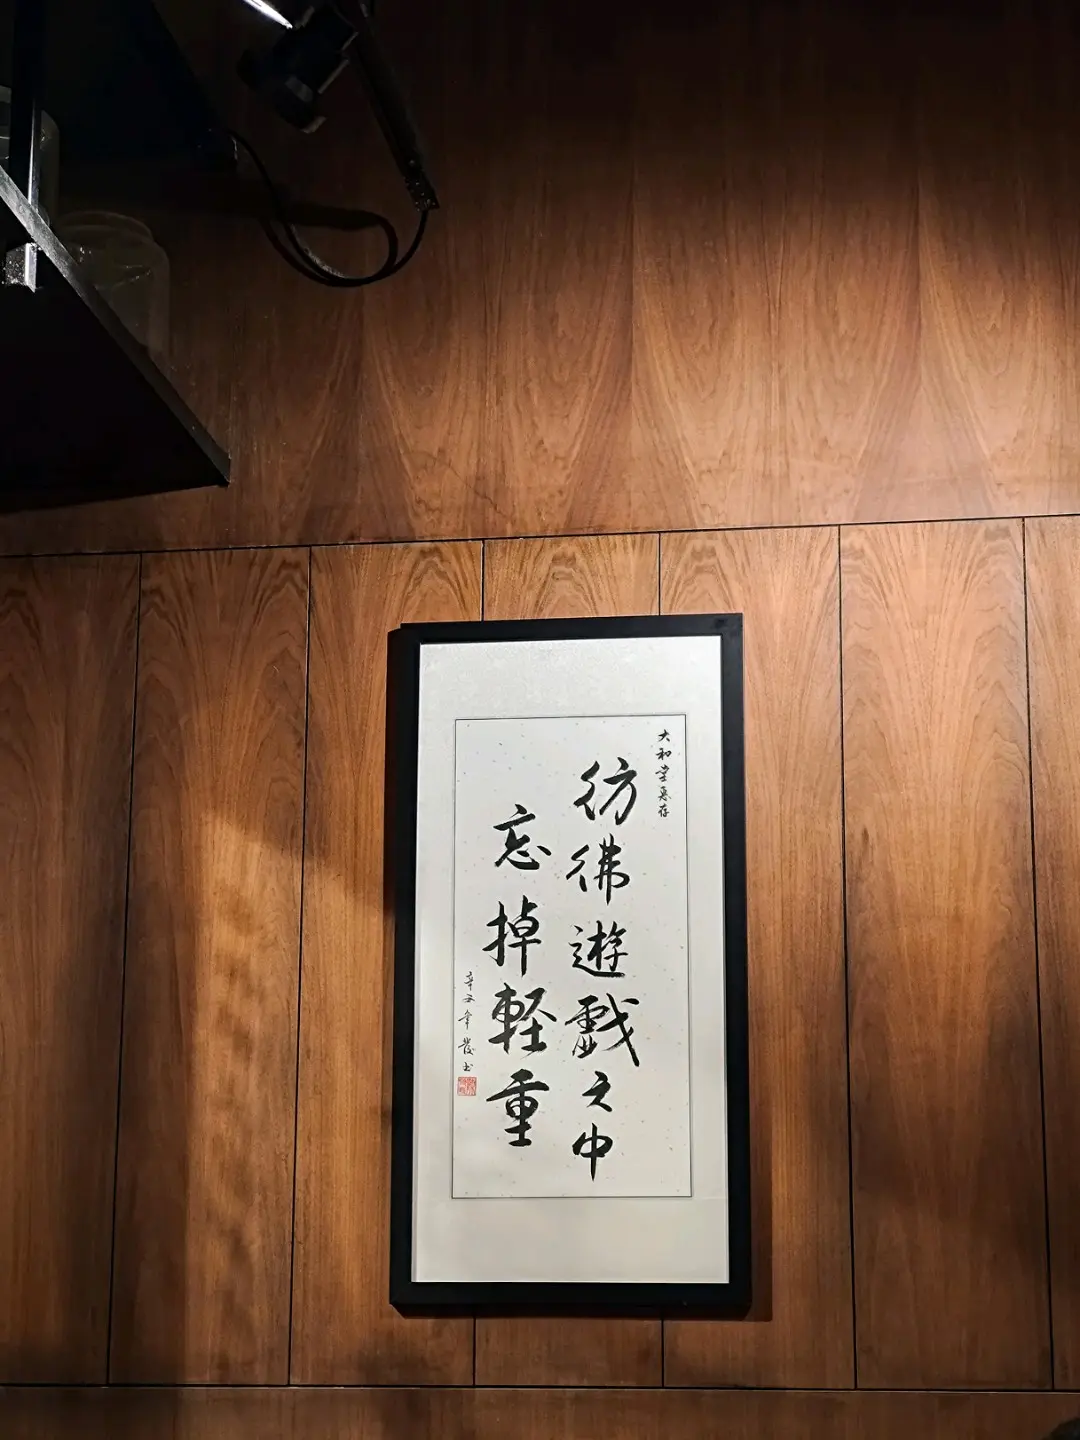 大和堂惠存
彷彿遊戲之中
忘掉輕重
辛丑年
書